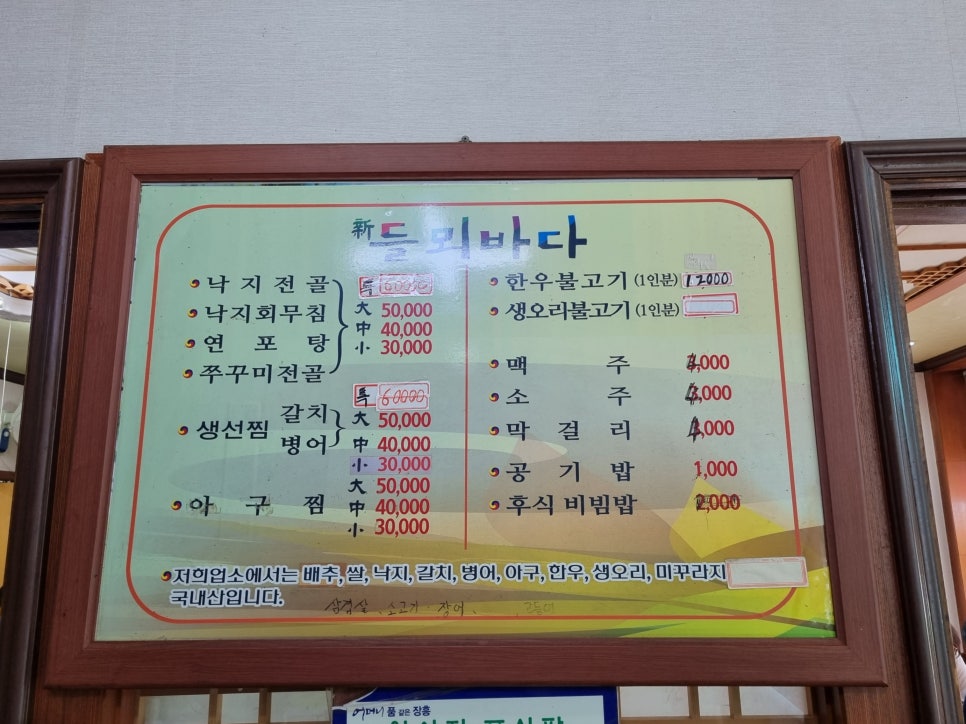 新 들뫼바다
낙지전골
낙지회무침
연포탕
쭈꾸미전골
특
大 50,000
中 40,000
小 30,000
생선찜 갈치 병어
특 60000
大 50,000
中 40,000
小 30,000
아구찜
大 50,000
中 40,000
小 30,000
한우불고기 (1인분) 12,000
생오리불고기 (1인분)
맥주 ,000
소주 ,000
막걸리 ,000
공기밥 1,000
후식비빔밥 2,000
저희업소에서는 배추, 쌀, 낙지, 갈치, 병어, 아구, 한우, 생오리, 미꾸라지
국내산입니다.
삼겹살, 소고기, 장어, 고등어
어머니 품 같은 장흥